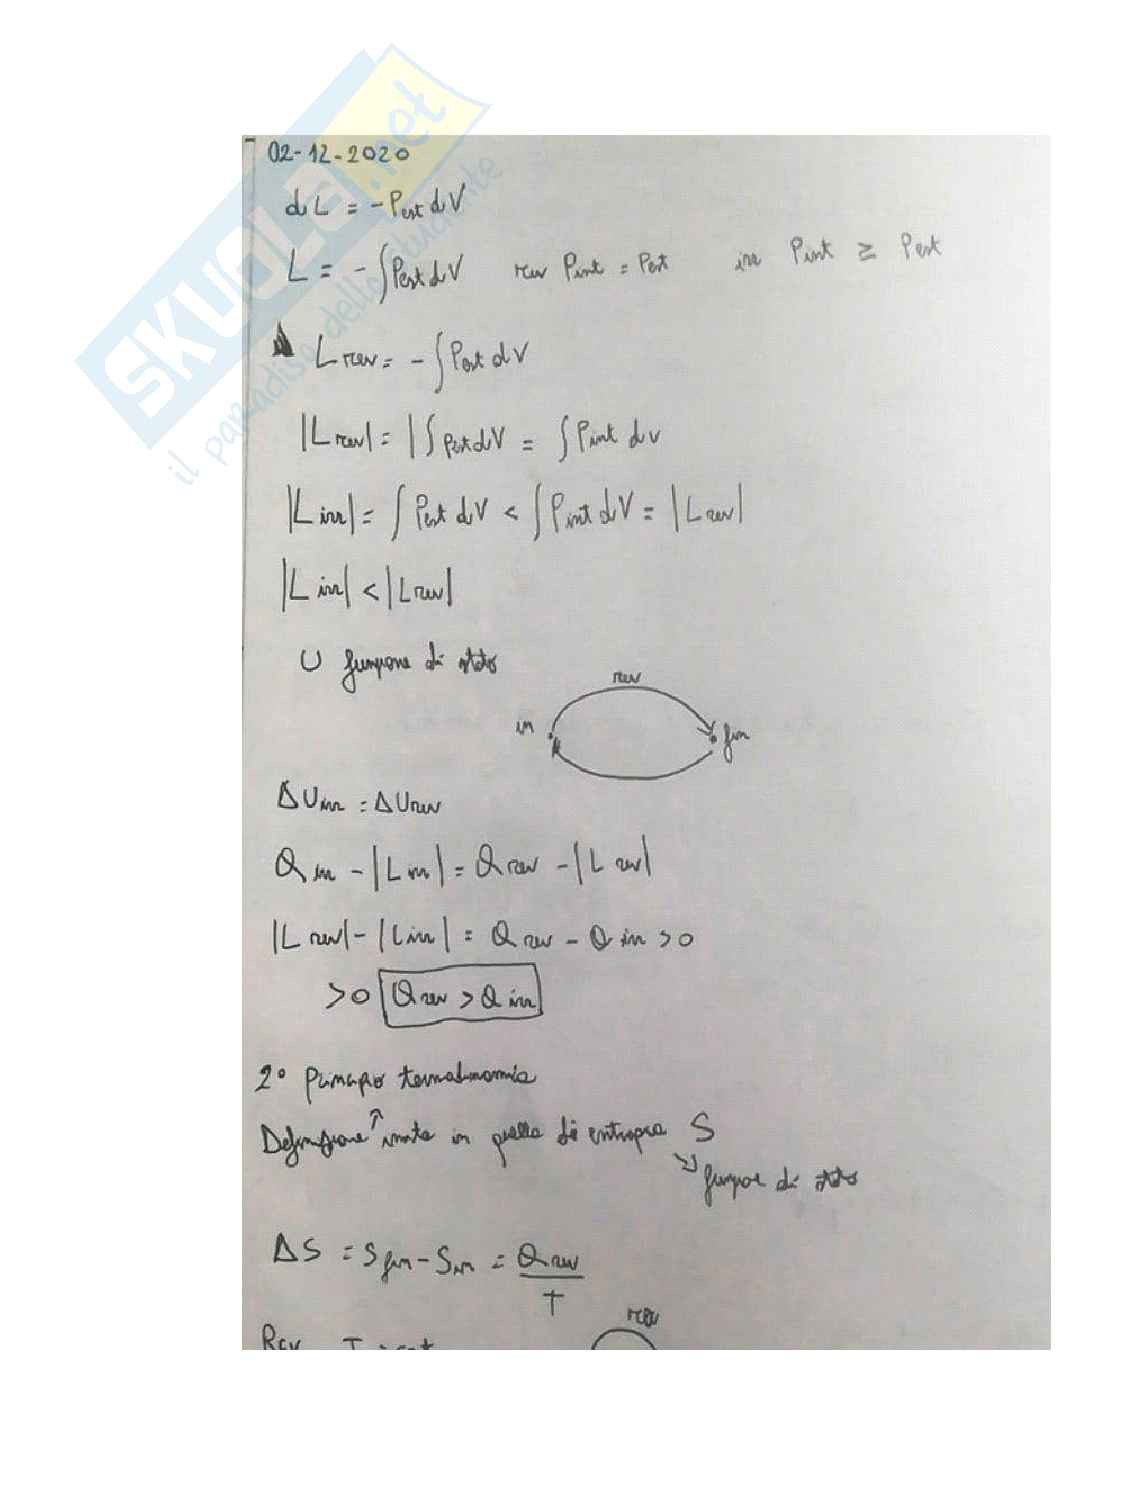 SKUOLA.net
il paradiso dello studente
02-12-2020
dL = -Pest dV
L = -∫Pest dV rev Pint = Pest irr Pint ≥ Pest
Lrev = -∫Pest dV
|Lrev| = |∫Pest dV = ∫Pint dV
|Lirr| = ∫Pest dV < ∫Pint dV = |Lrev|
|Lirr| < |Lrev|
U funzione di stato
rev
in fin
ΔUirr = ΔUrev
Qirr - |Lirr| = Qrev - |Lrev|
|Lrev| - |Lirr| = Qrev - Qirr > 0
>0 Qrev > Qirr
2° Principio termodinamica
Definizione insita in quella di entropia S
funzione di stato
ΔS = Sfin - Sin = Qrev
T
rev
Rev T